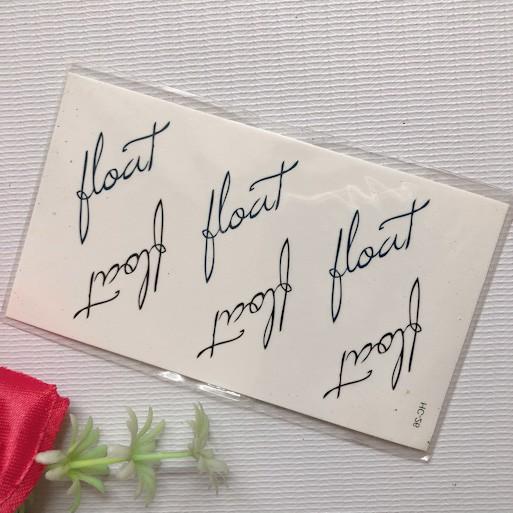 float float float
float float float
HC-26